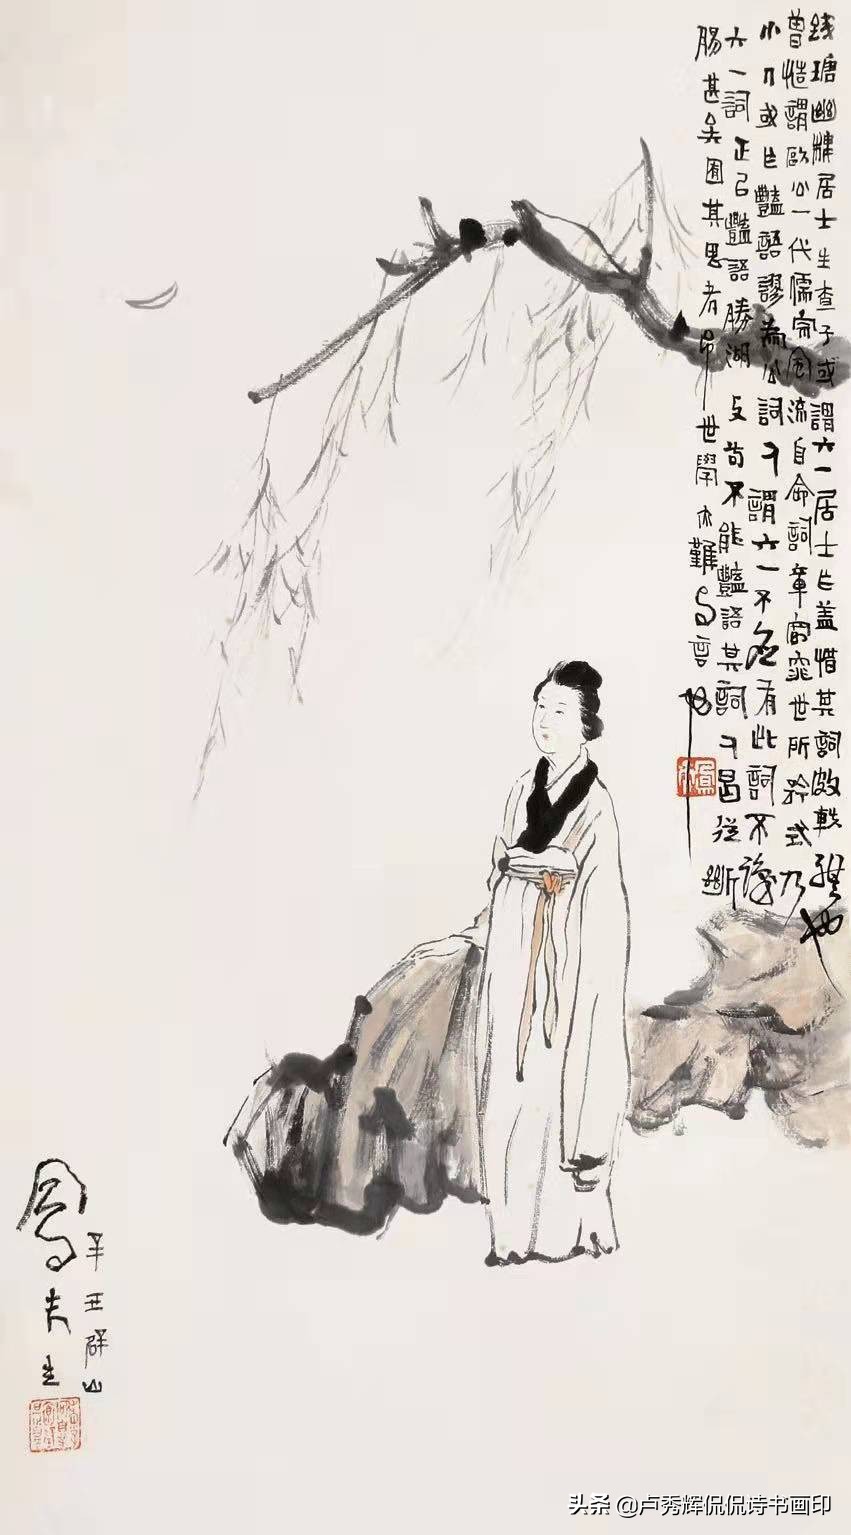 錢瑭幽棲居士生查子或謂六一居士乍蓋惜其詞故軼
曾慥謂歐公一代儒宗風流自命詞章窈窕世所矜式乃
小人或乍豔語謬為公詞又謂六一不應有此詞不識
六一詞正以豔語勝湖苟不能豔語其詞又曷從斷
腸甚矣固其思者世學亦難与言也
辛丑群山
头条 @卢秀辉侃侃诗书画印